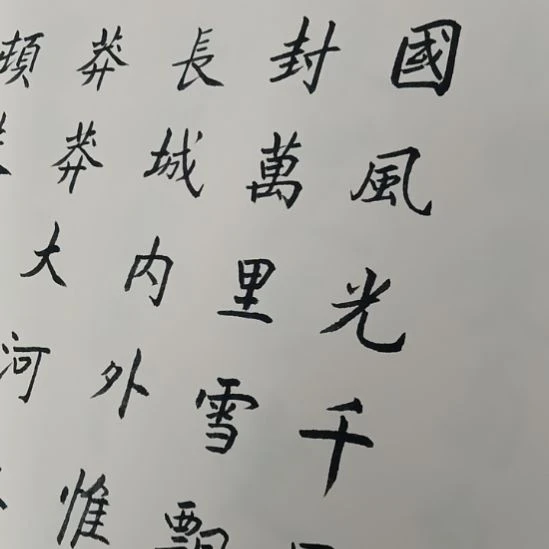 國風光千
封萬里雪飄
長城内外惟
莽莽大河
頓